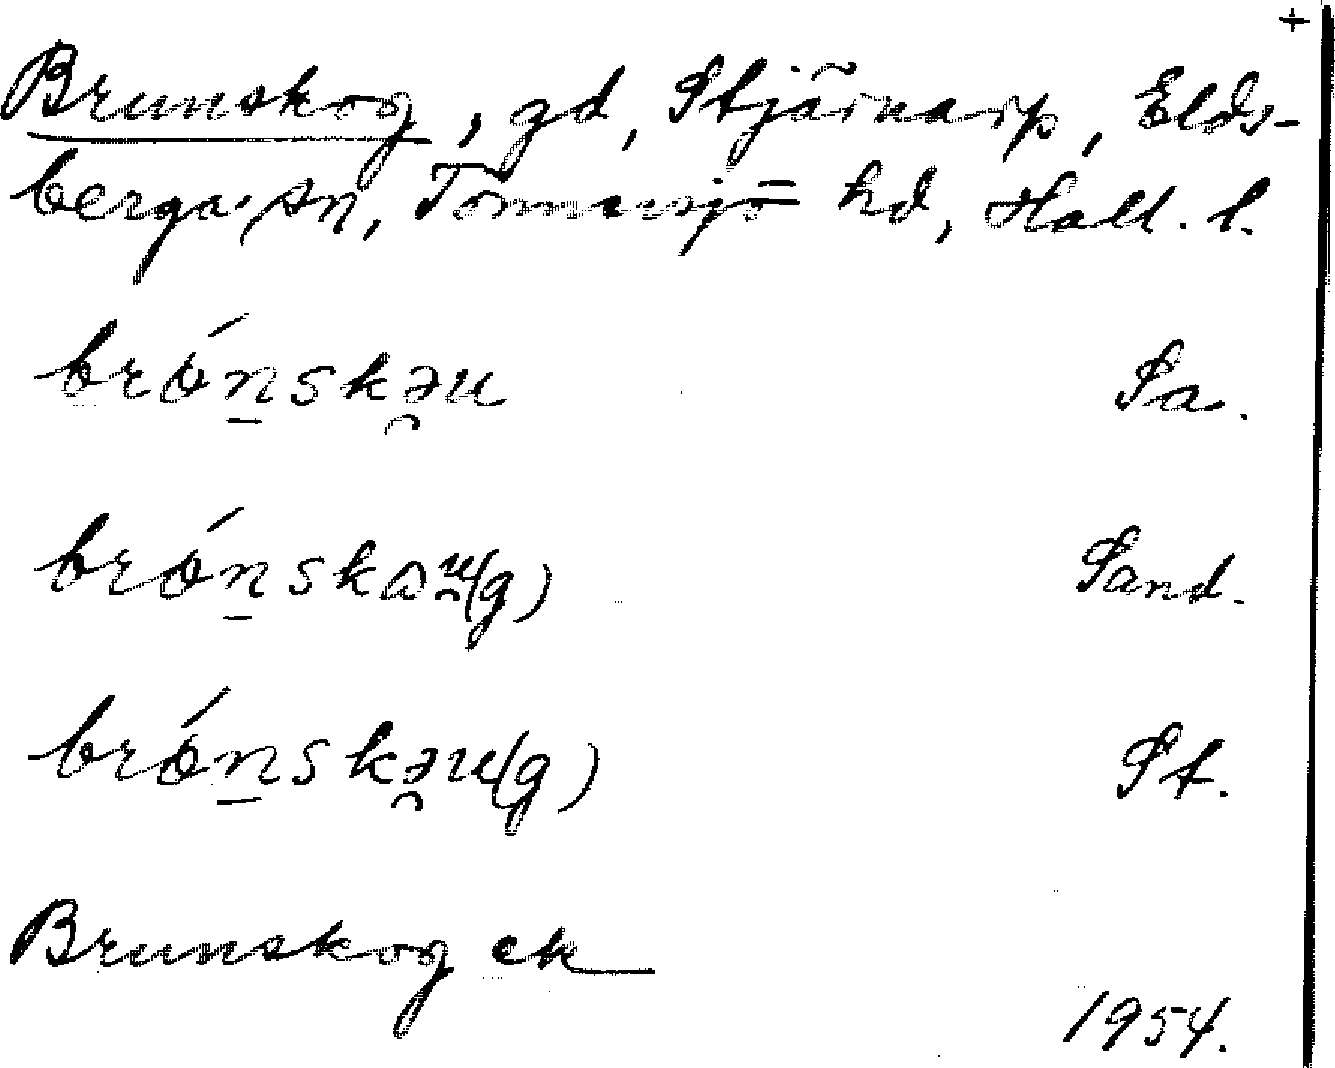 +
Brunskog, gd, Stjärnarp, Elds-
berga sn, Tönnersjö hd, Hall. l.
brónskə̯u Sa.
brónskɷᵘ̯(g) Sand.
brónskə̯u(g) St.
Brunskog ek
1954.